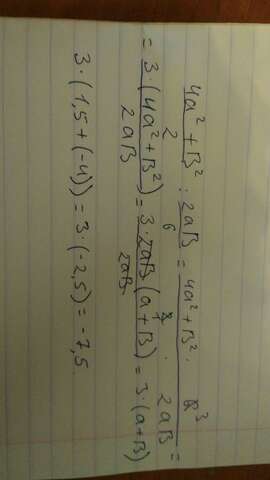 4a² + B² / 2 : 2aB / 6 = 4a² + B² / 2 · 6 3 / 2aB =
= 3 · (4a² + B²) / 2aB = 3 · 2aB (a + B) / 2aB = 3 · (a + B)
3 · (1,5 + (-4)) = 3 · (-2,5) = -7,5